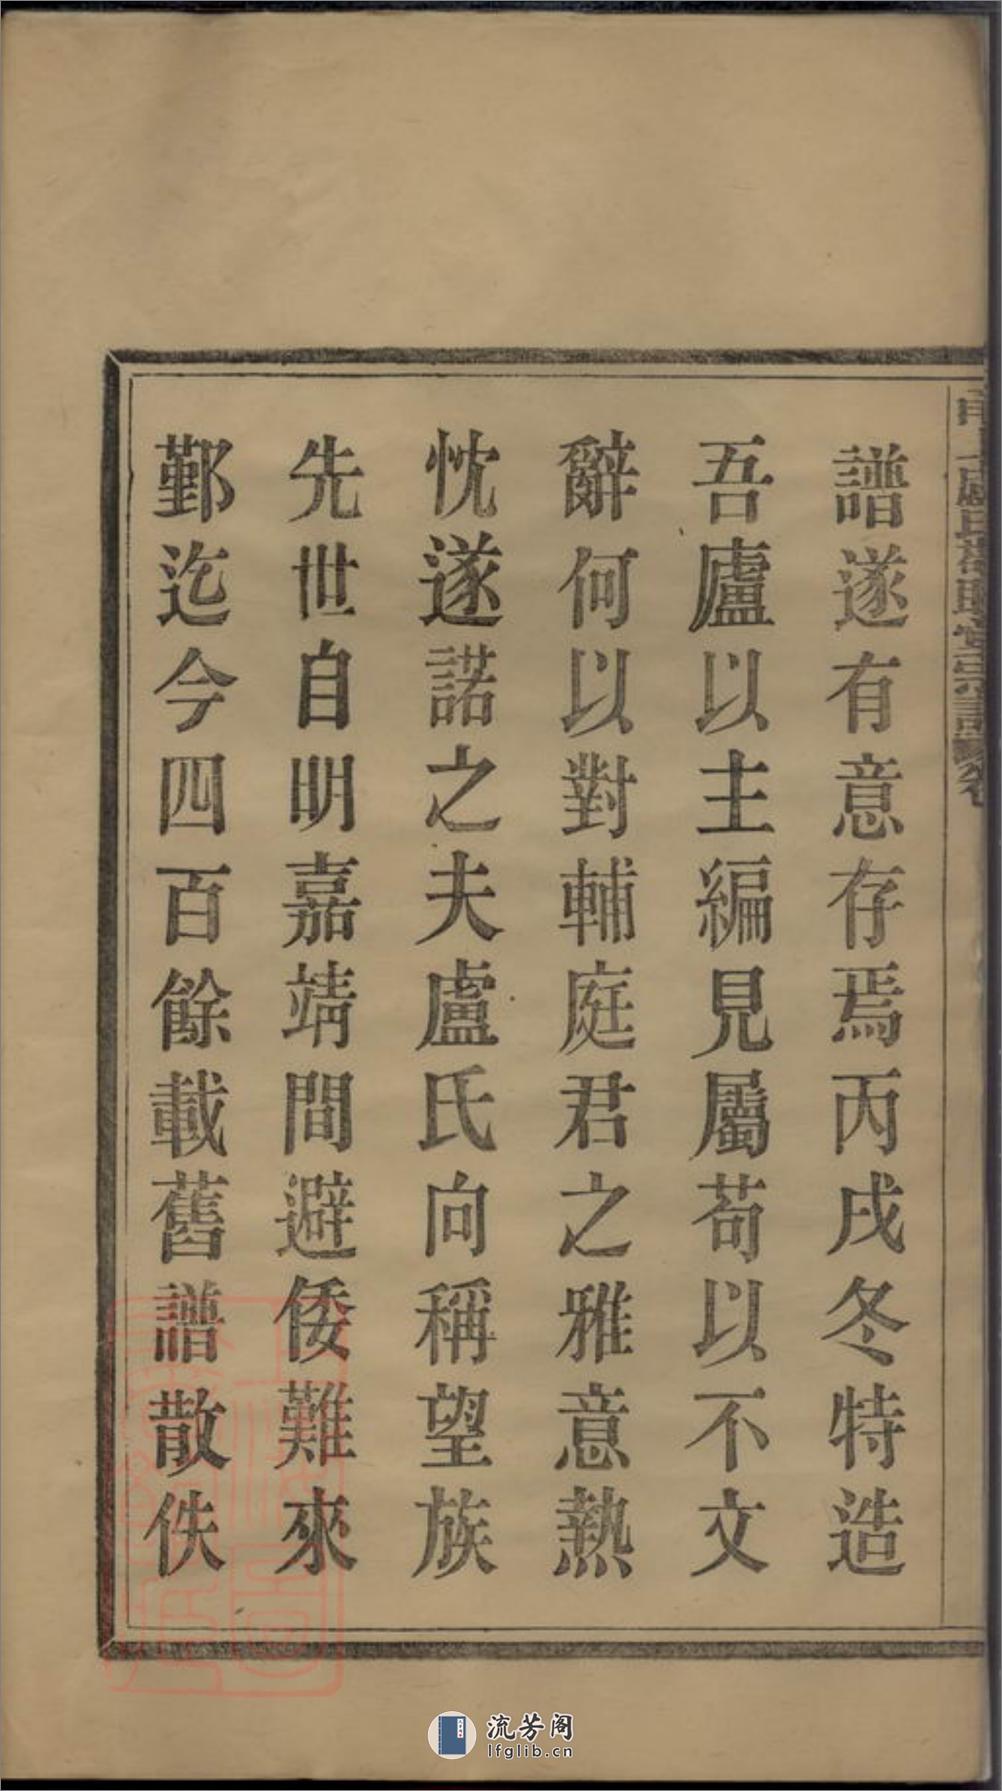 譜遂有意存焉丙戌冬特造
吾廬以主編見屬苟以不文
辭何以對輔庭君之雅意熱
忱遂諾之夫盧氏向稱望族
先世自明嘉靖間避倭難來
鄞迄今四百餘載舊譜散佚
流芳阁
lfglib.cn